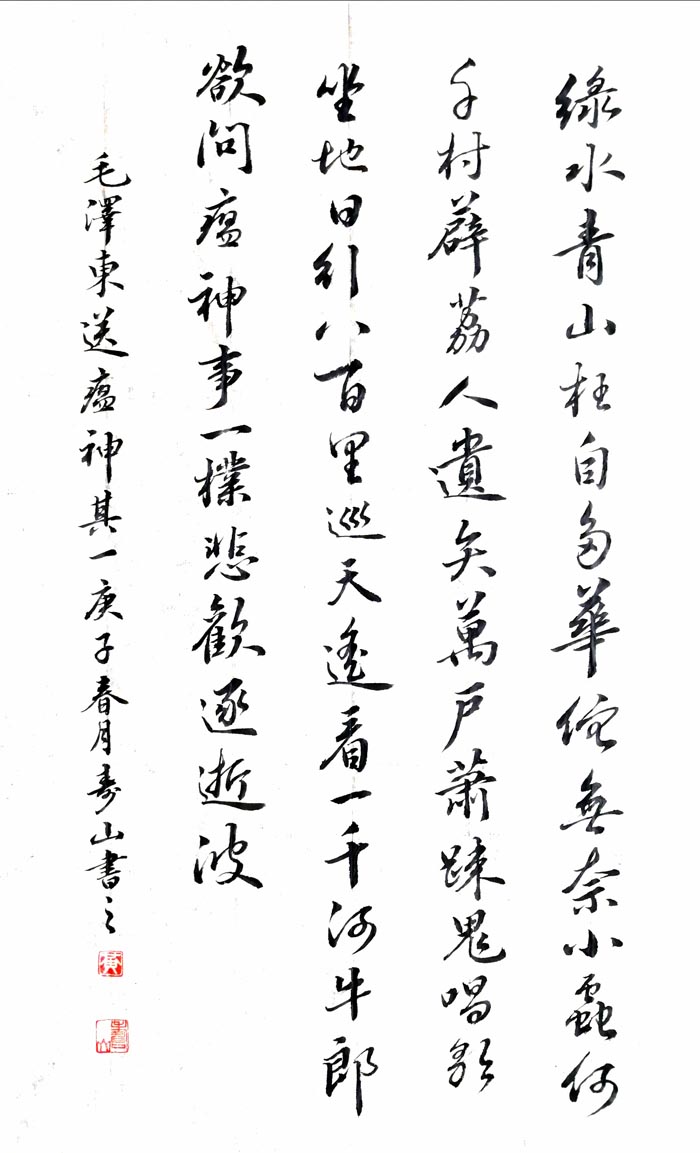 綠水青山枉自多華佗無奈小蟲何
千村薜荔人遺矢萬戶蕭踈鬼唱歌
坐地日行八百里巡天遙看一千河牛郎
欲問瘟神事一樣悲歡逐逝波
毛澤東送瘟神其一庚子春月壽山書之
黃
壽山